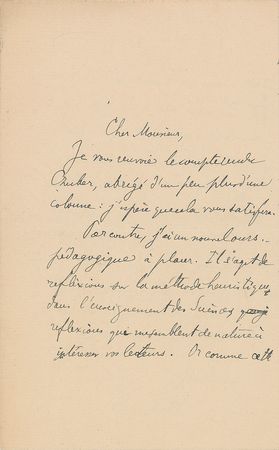 Cher Monsieur,
Je vous renvoie le compte rendu
Chuber, abrégé d'un peu plus d'une
colonne : j'espère que cela vous satisfera.
Par contre, j'ai un nouvel ours
pédagogique à placer. Il s'agit de
réflexions sur la méthode heuristique
dans l'enseignement des Sciences
réflexions qui me semblent de nature à
intéresser vos lecteurs. Or comme cette